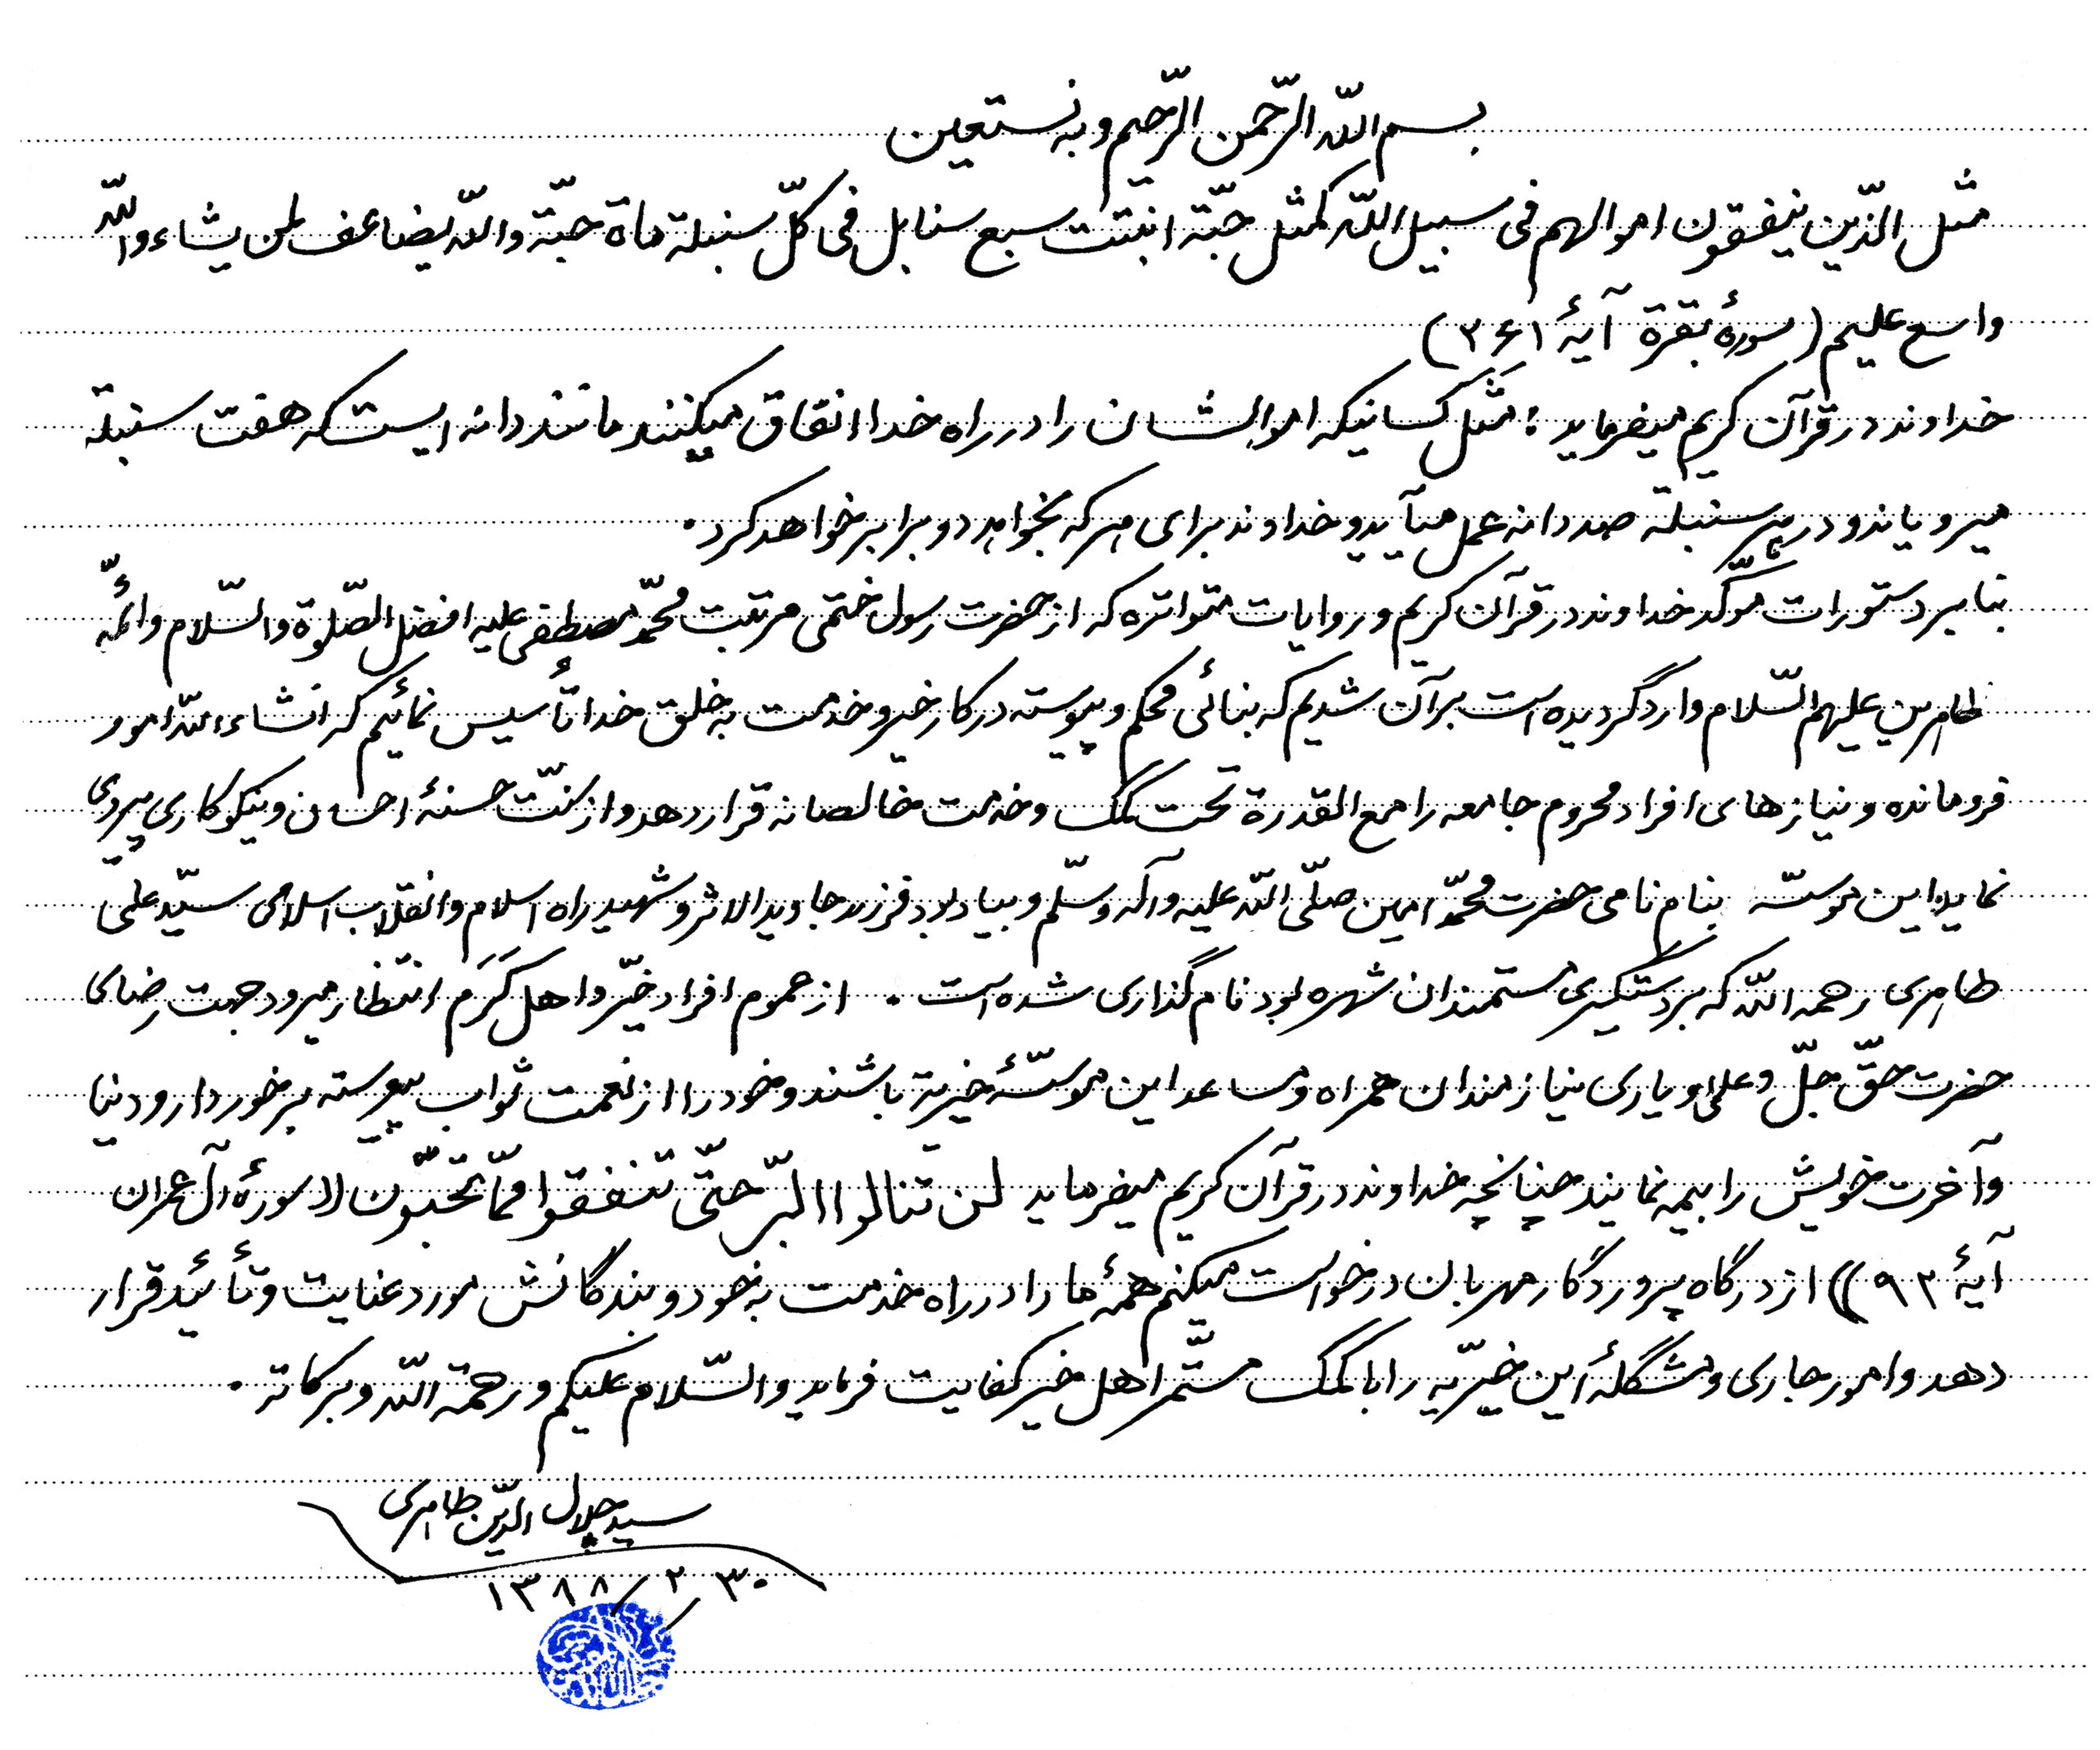 بسم اللّه الرّحمن الرّحیم و به نستعین
مثل الّذین ینفقون اموالهم فی سبیل اللّه کمثل حبّة انبتت سبع سنابل فی کلّ سنبلة مأة حبّة واللّه یضاعف لمن یشاء واللّه
واسع علیم (سورۀ بقرة آیۀ ۲۶۱)
خداوند در قرآن کریم میفرماید: مَثَل کسانیکه اموالشان را در راه خدا انفاق میکنند مانند دانه ایست که هفت سنبلة
میرویاند و در هر سنبلة صد دانه عمل میآید و خداوند برای هر که بخواهد دو برابر خواهد کرد.
بنا بر دستورات مؤکّد خداوند در قرآن کریم و روایات متواتره که از حضرت رسول ختمی مرتبت محمّد مصطفی علیه افضل الصّلوة والسّلام و ائمّه
طاهرین علیهم السّلام وارد گردیده است بر آن شدیم که بنائی محکم و پیوسته در کار خیر و خدمت به خلق خدا تأسیس نمائیم که انشاءاللّه امور
فرومانده و نیازهای افراد محروم جامعه را مع القدرة تحت کمک و خدمت خالصانه قرار دهد و از سنّت حسنۀ احسان و نیکوکاری پیروی
نماید این موسّسه بنام نامی حضرت محمّد امین صلّی اللّه علیه وآله وسلّم و بیاد بود فرزند جاوید الاثر و شهید راه اسلام و انقلاب اسلامی سیّد علی
طاهری رحمه اللّه که بر دستگیری مستمندان شهره بود نام گذاری شده است. از عموم افراد خیّر و اهل کَرَم انتظار میرود جهت رضای
حضرت حقّ جلّ وعلی و یاری نیازمندان همراه و مساعد این موسّسۀ خیریّه باشند و خود را از نعمت ثواب پیوسته برخوردار و دنیا
و آخرت خویش را بیمه نمایند چنانچه خداوند در قرآن کریم میفرماید لن تنالوا البرّ حتّی تنفقوا ممّا تحبّون ((سورۀ آل عمران
آیۀ ۹۲)) از درگاه پروردگار مهربان درخواست میکنم همۀ ما را در راه خدمت به خود و بندگانش مورد عنایت و تأئید قرار
دهد و امور جاری و مشگلۀ این خیریّه را با کمک مستّمر اهل خیر کفایت فرماید والسّلام علیکم ورحمة اللّه وبرکاته.
سید جلال الدّین طاهری
۱۳۸۸/۲/۳۰